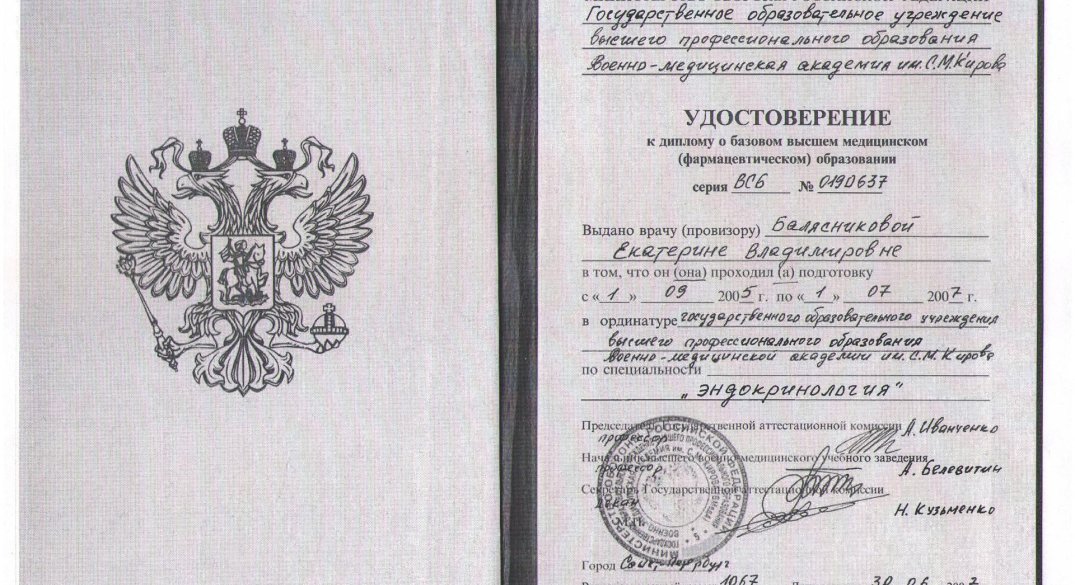 Государственное образовательное учреждение
высшего профессионального образования
Военно-медицинская академия им. С.М.Кирова
УДОСТОВЕРЕНИЕ
к диплому о базовом высшем медицинском
(фармацевтическом) образовании
серия ВСБ № 0190637
Выдано врачу (провизору) Балясниковой
Екатерине Владимировне
в том, что он (она) проходил (а) подготовку
с « 1 » 09 2005 г. по « 1 » 07 2007 г.
в ординатуре государственного образовательного учреждения
высшего профессионального образования
Военно-медицинской академии им. С.М.Кирова
по специальности
„эндокринология"
Председатель Государственной аттестационной комиссии А. Иванченко
профессор
Начальник высшего военно-медицинского учебного заведения
профессор А. Белевитин
Секретарь Государственной аттестационной комиссии
декан Н. Кузьменко
М.П.
Город Санкт-Петербург
1067 30 06 2007